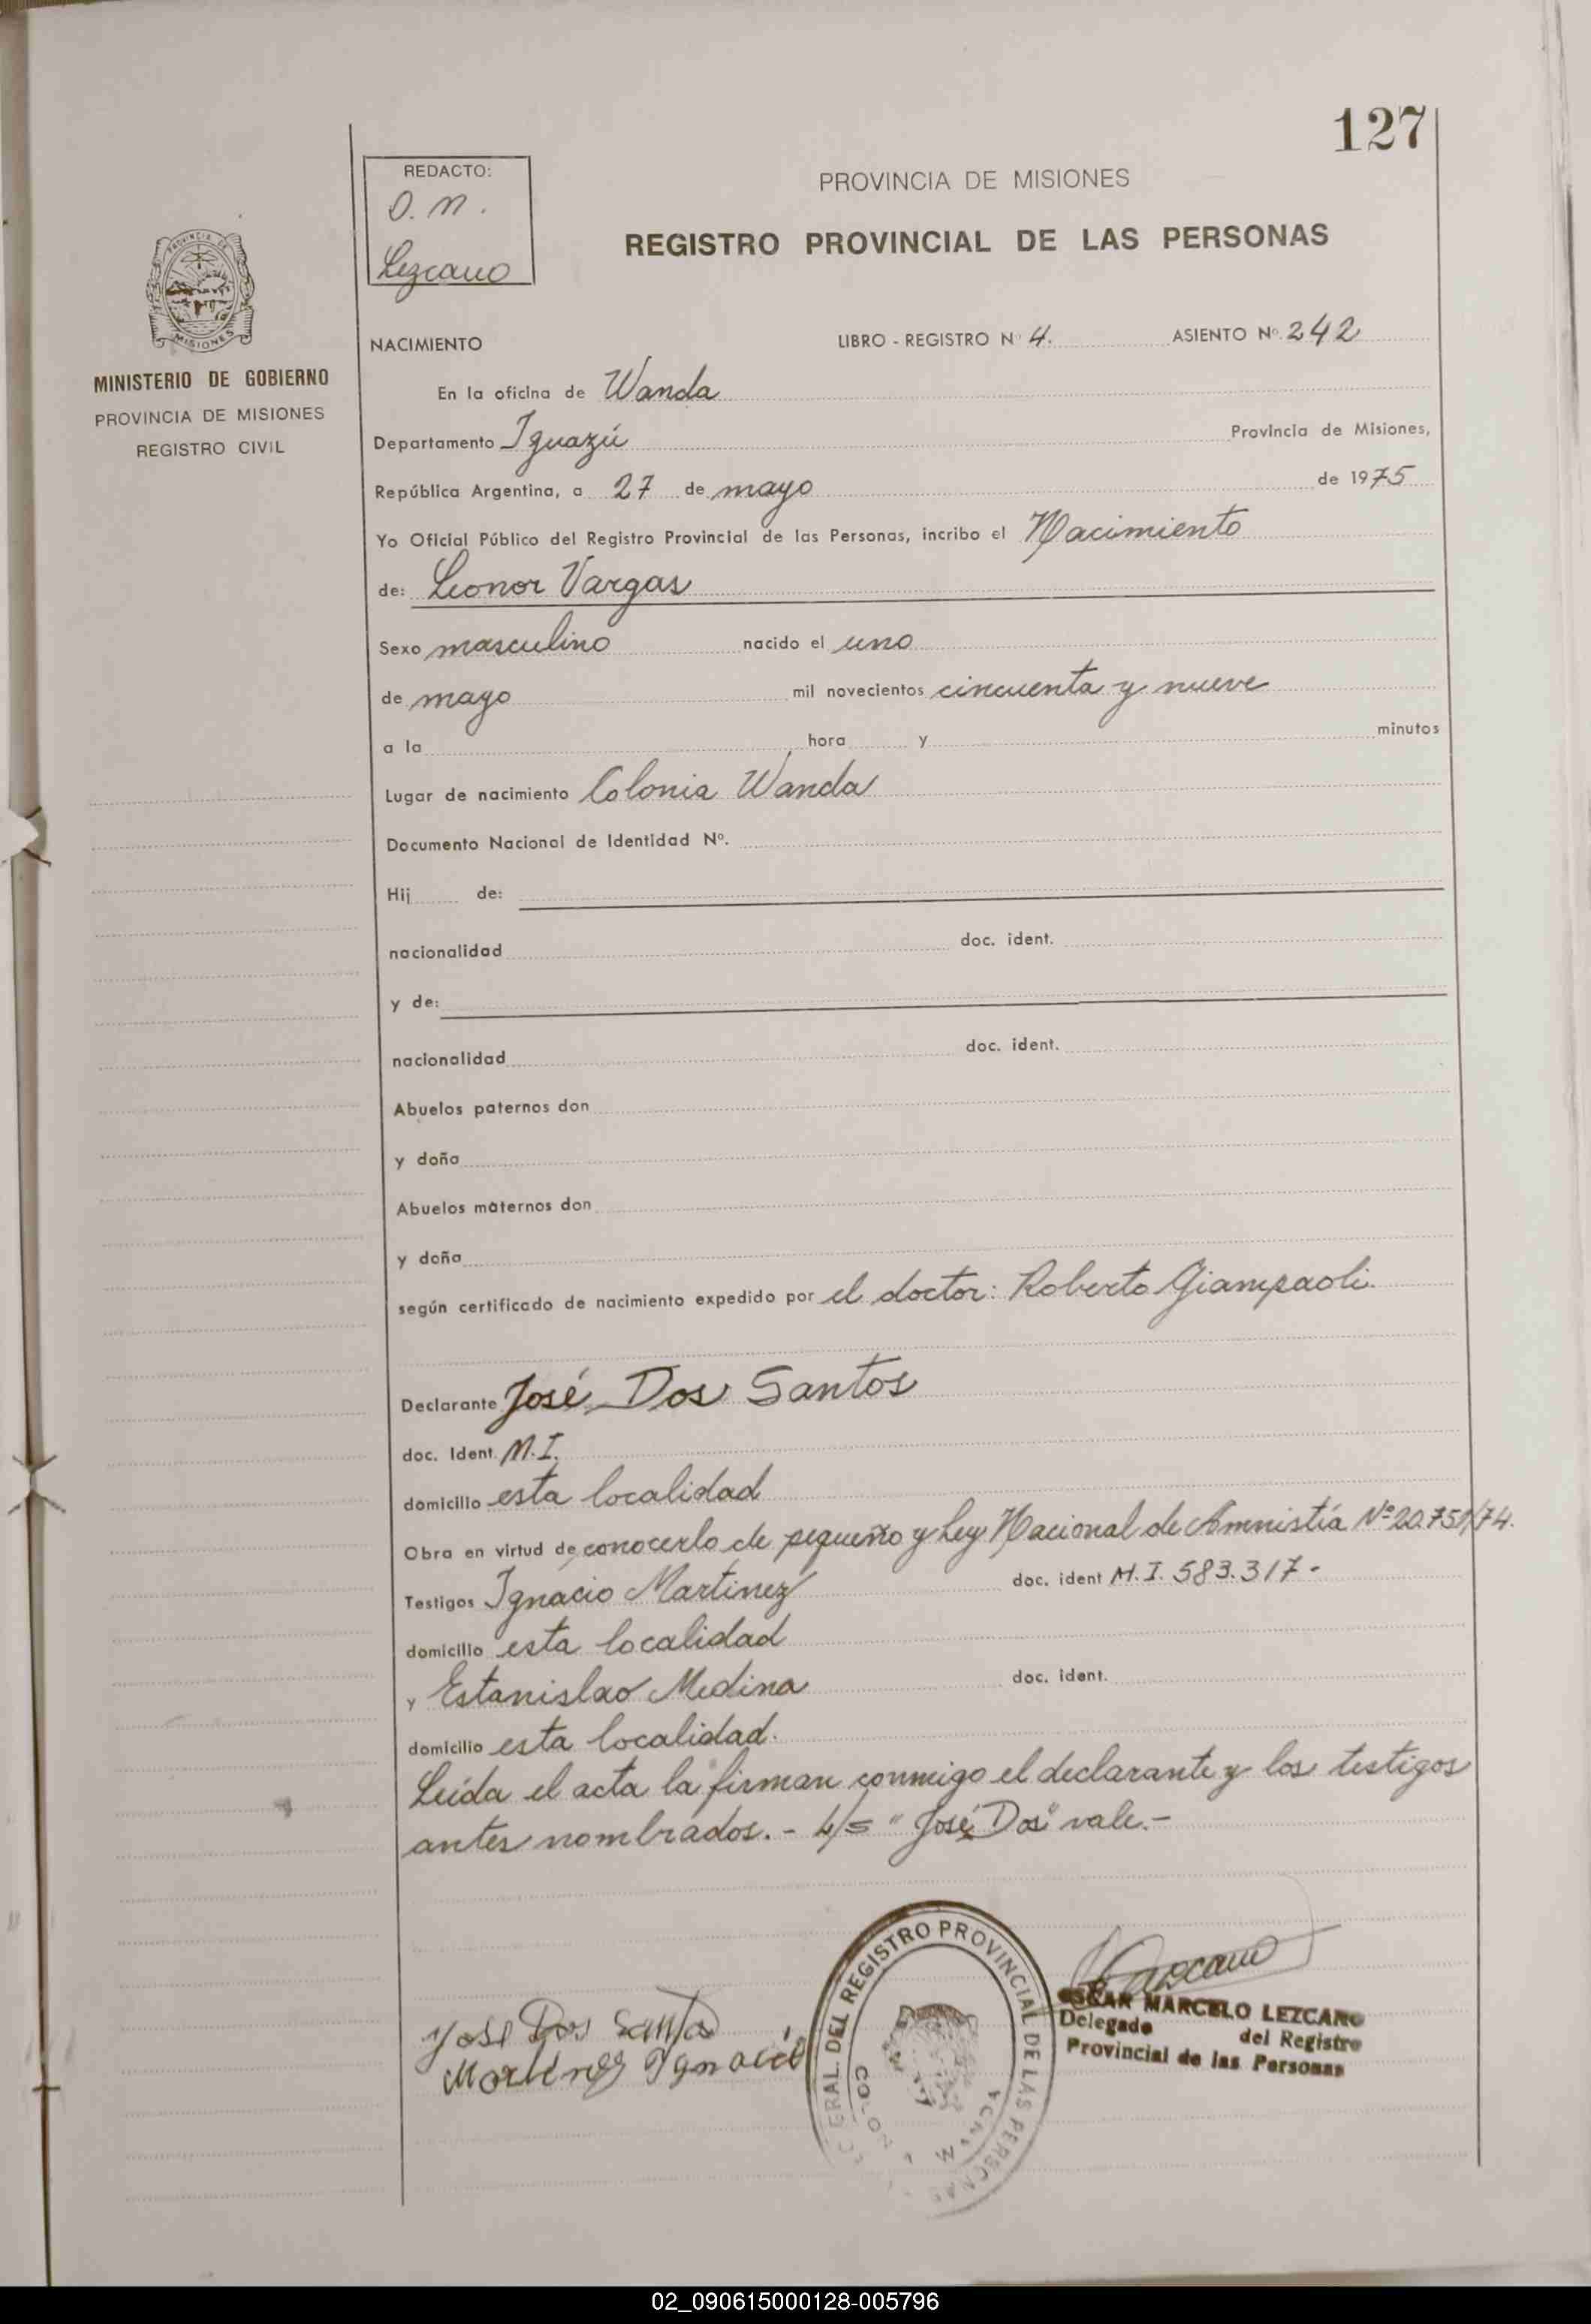 127
REDACTO:
O. M.
Lezcano
PROVINCIA DE MISIONES
REGISTRO PROVINCIAL DE LAS PERSONAS
PROVINCIA DE
MISIONES
MINISTERIO DE GOBIERNO
PROVINCIA DE MISIONES
REGISTRO CIVIL
NACIMIENTO LIBRO - REGISTRO Nº 4. ASIENTO Nº 242
En la oficina de Wanda
Departamento Iguazú Provincia de Misiones,
República Argentina, a 27 de mayo de 1975
Yo Oficial Público del Registro Provincial de las Personas, incribo el Nacimiento
de: Leonor Vargas
Sexo masculino nacido el uno
de mayo mil novecientos cincuenta y nueve
a la hora y minutos
Lugar de nacimiento Colonia Wanda
Documento Nacional de Identidad Nº.
Hij de:
nacionalidad doc. ident.
y de:
nacionalidad doc. ident.
Abuelos paternos don
y doña
Abuelos maternos don
y doña
según certificado de nacimiento expedido por el doctor: Roberto Giampaoli.
Declarante José Dos Santos
doc. Ident. M.I.
domicilio esta localidad
Obra en virtud de conocerlo de pequeño y Ley Nacional de Amnistía Nº 20.751/74.
Testigos Ignacio Martinez doc. ident M.I. 583.317-
domicilio esta localidad
y Estanislao Medina doc. ident.
domicilio esta localidad.
Leída el acta la firman conmigo el declarante y los testigos
antes nombrados. - "José Dos" vale.-
Jose Dos Santo
Martinez Ignacio
GRAL. DEL REGISTRO PROVINCIAL DE LAS PERSONAS
WANDA
Lezcano
OSCAR MARCELO LEZCANO
Delegado del Registro
Provincial de las Personas
02_090615000128-005796